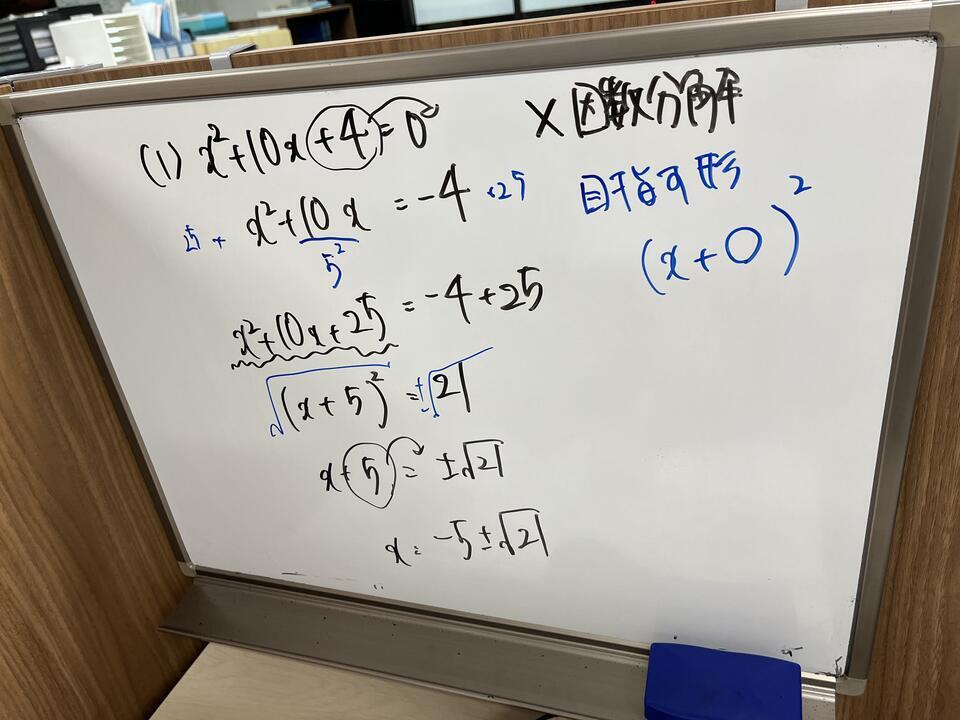 (1) x²+10x+4=0
×因数分解
x²+10x=-4
+25
25+
5²
目指す形
(x+〇)²
x²+10x+25=-4+25
√(x+5)²=±√21
x+5=±√21
x=-5±√21